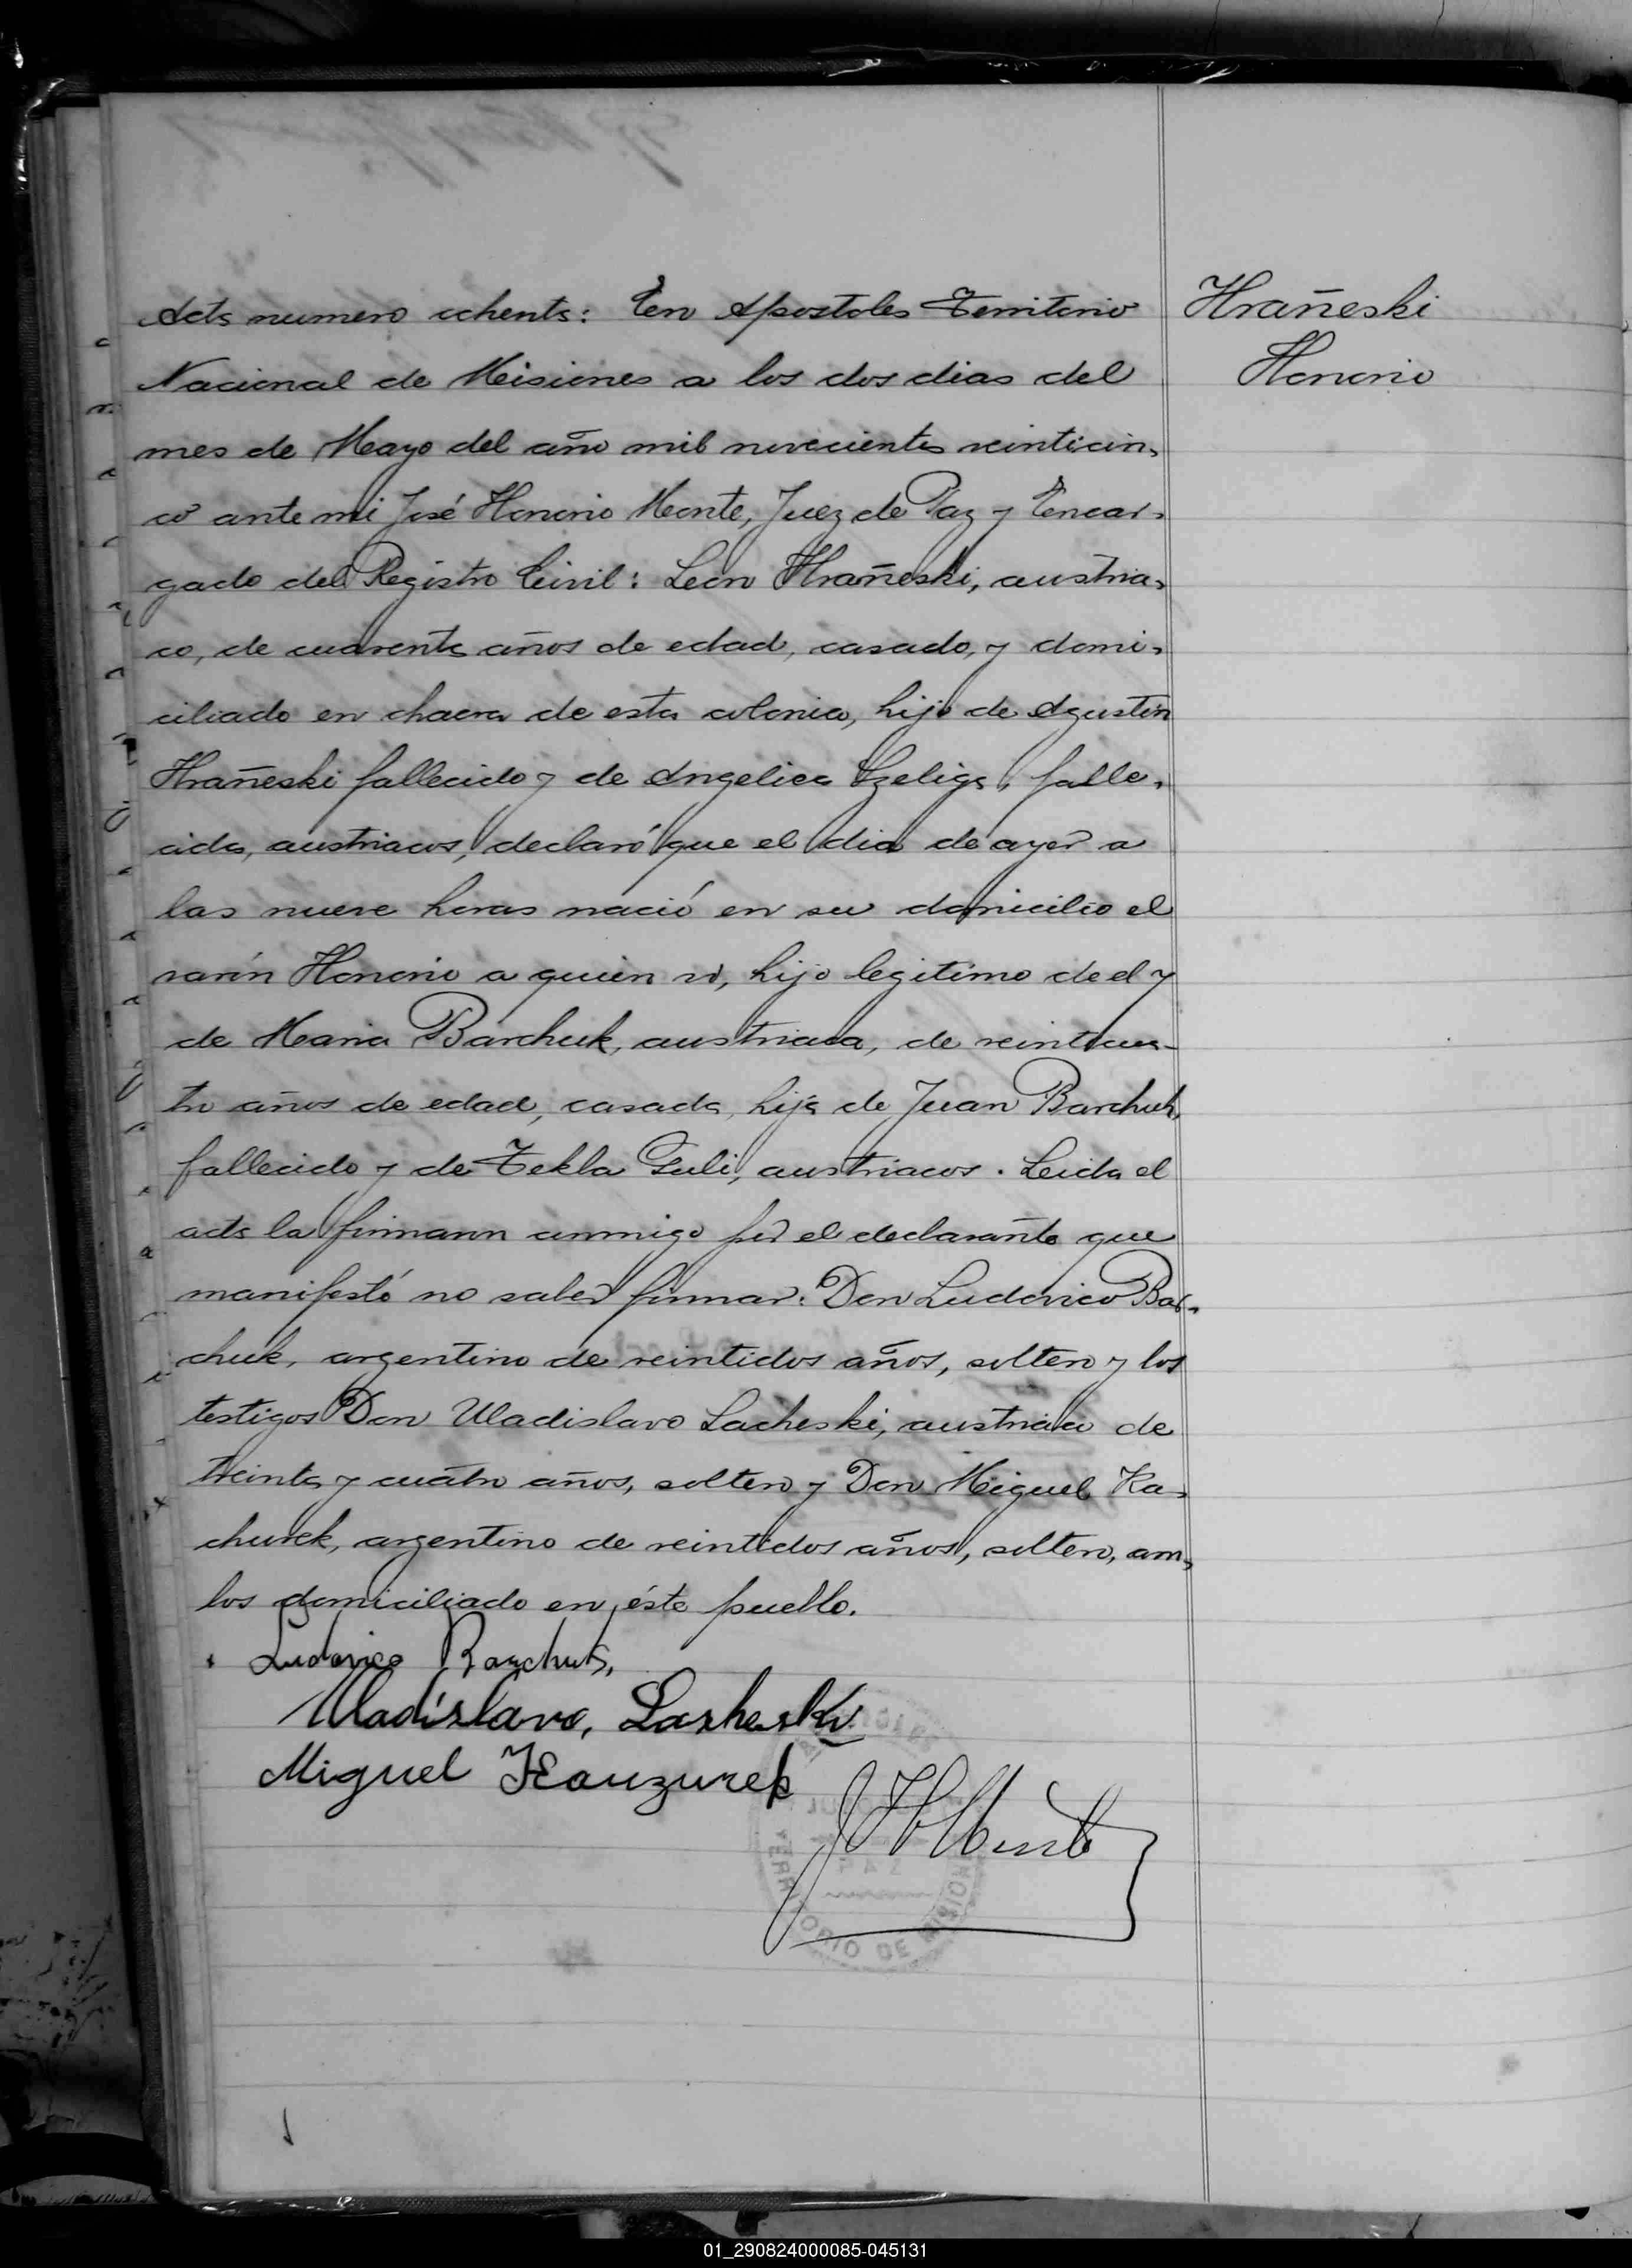 Acta numero ochenta: En Apostoles Territorio
Hrañeski
Nacional de Misiones a los dos dias del
Honorio
mes de Mayo del año mil novecientos veinticin-
co ante mi José Honorio Monte, Juez de Paz y Encar-
gado del Registro Civil: León Hrañeski, austria-
co, de cuarenta años de edad, casado, y domi-
ciliado en chacra de esta colonia, hijo de Agustin
Hrañeski fallecido y de Angelica Szeliga, falle-
cida, austriacos, declaró que el dia de ayer a
las nueve horas nació en su domicilio el
varón Honorio a quien vi, hijo legitimo de el y
de Maria Barchuk, austriaca, de veinticua-
tro años de edad, casada, hija de Juan Barchuk
fallecido y de Tekla Guli, austriacos. Leida el
acta la firmaron conmigo por el declarante que
manifestó no saber firmar: Don Ludovico Bar-
chuk, argentino de veintidos años, soltero y los
testigos Don Uladislavo Lacheski, austriaco de
treinta y cuatro años, soltero y Don Miguel Ka-
churek, argentino de veintidos años, soltero, am-
bos domiciliado en éste pueblo.
Ludovico Barchuk,
Uladislavo, Lasheski
Miguel Kauzurek
JHMonte
01_290824000085-045131